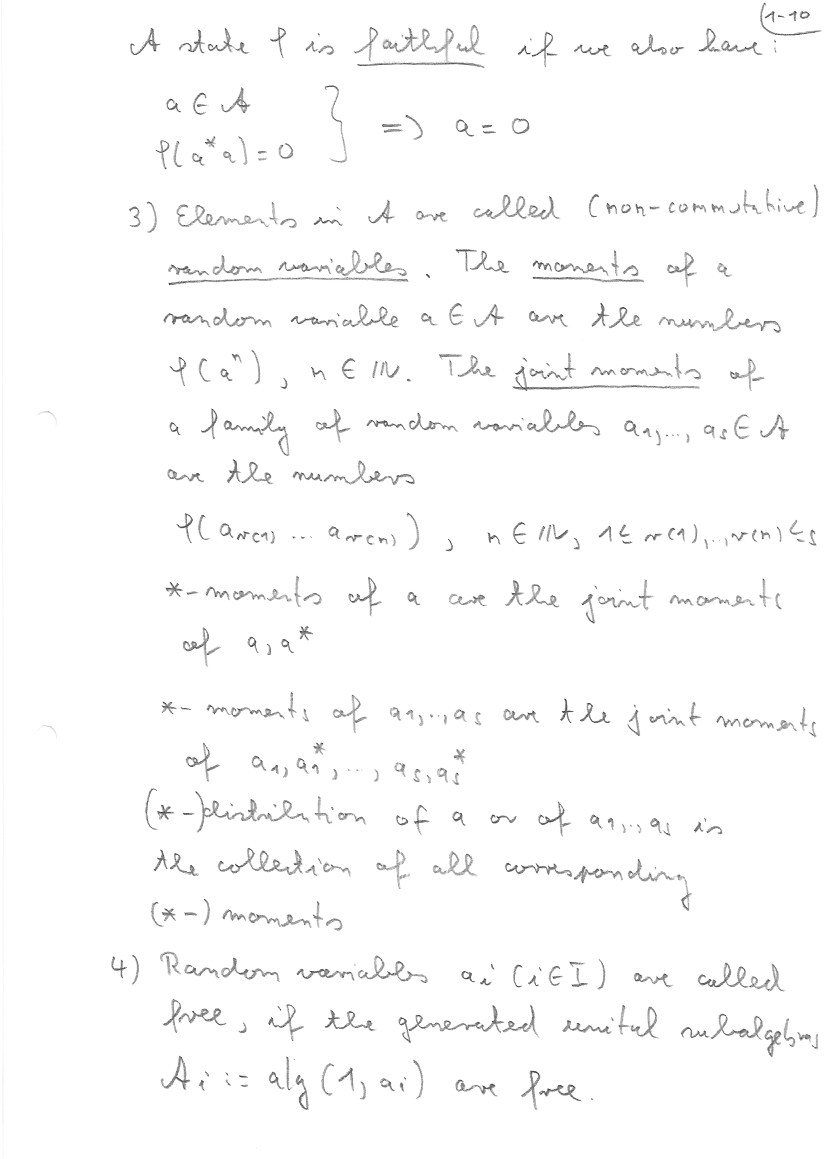 1-10
A state φ is faithful if we also have:
a ∈ A
φ(a*a) = 0 } => a = 0
3) Elements in A are called (non-commutative)
random variables. The moments of a
random variable a ∈ A are the numbers
φ(aⁿ), n ∈ ℕ. The joint moments of
a family of random variables a₁,..., aₛ ∈ A
are the numbers
φ(a_r(1) ... a_r(n)), n ∈ ℕ, 1 ≤ r(1),..,r(n) ≤ s
*-moments of a are the joint moments
of a, a*
*-moments of a₁,.., aₛ are the joint moments
of a₁, a₁*, ..., aₛ, aₛ*
(*-)distribution of a or of a₁,.., aₛ is
the collection of all corresponding
(*-) moments
4) Random variables aᵢ (i ∈ I) are called
free, if the generated unital subalgebras
Aᵢ := alg(1, aᵢ) are free.